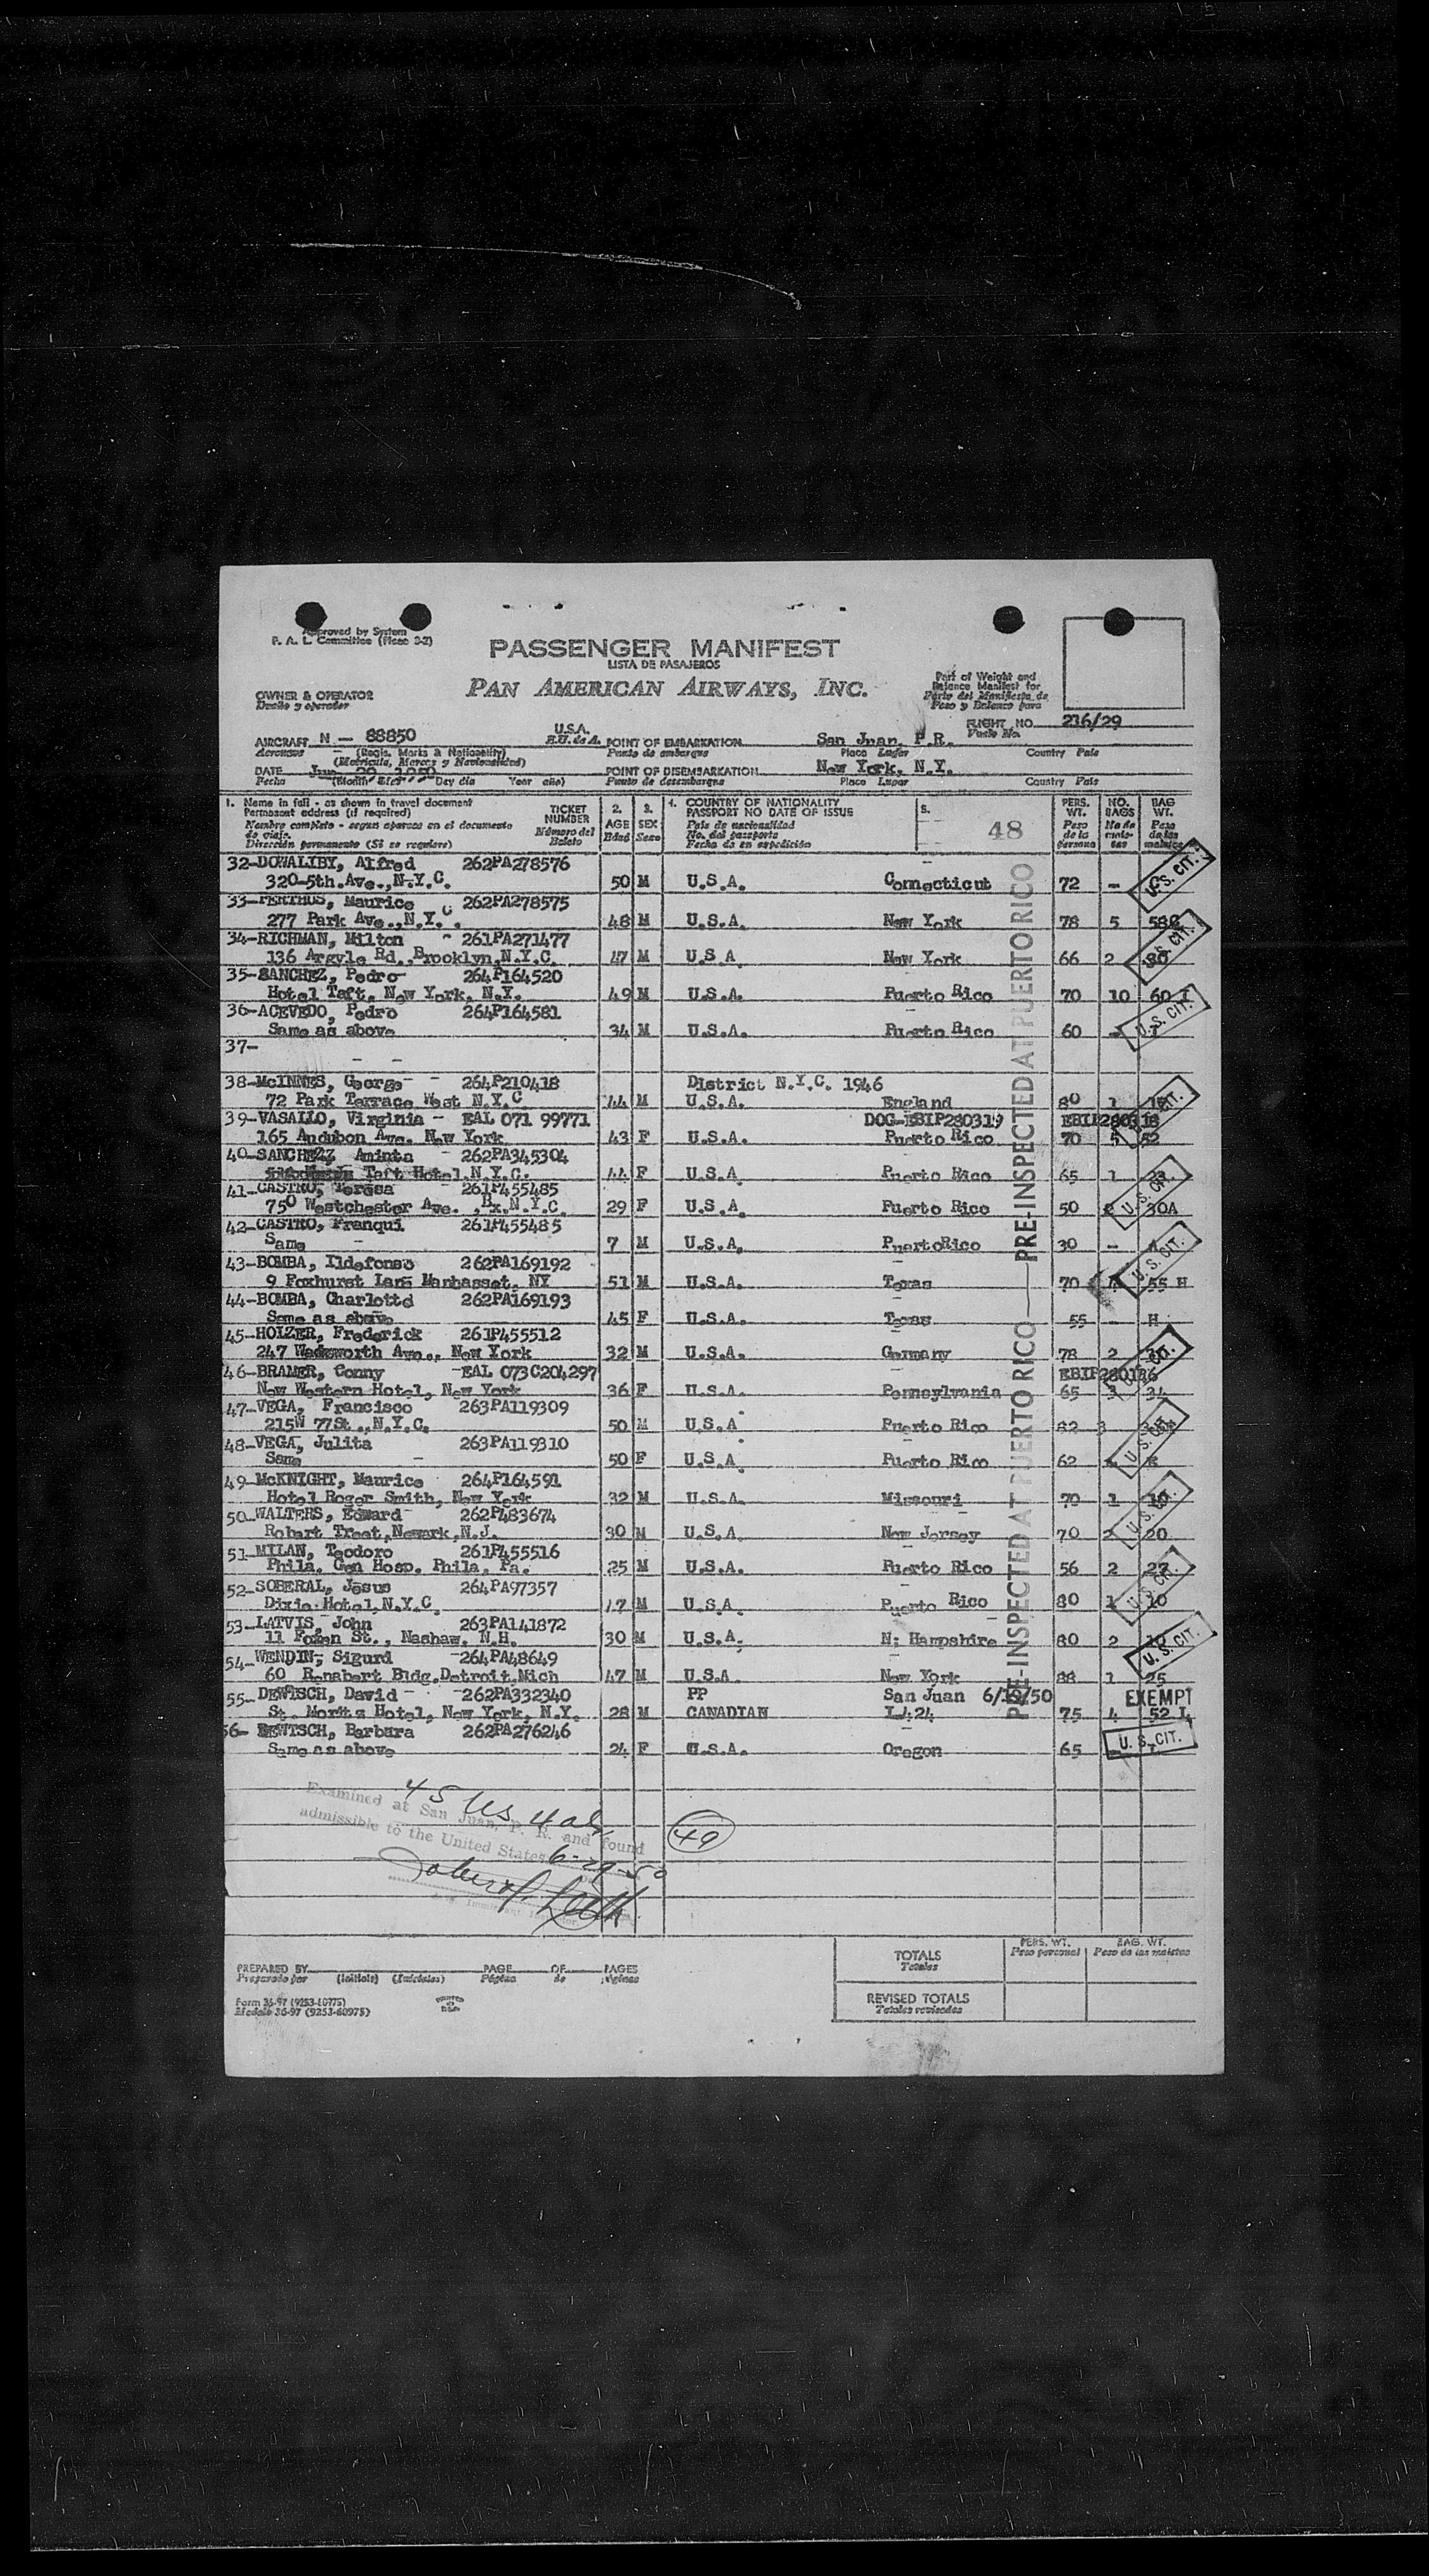 Approved by System
P. A. L. Committee (Meac 3-2)
PASSENGER MANIFEST
LISTA DE PASAJEROS
PAN AMERICAN AIRWAYS, INC.
OWNER & OPERATOR
Dueño y operador
Part of Weight and
Balance Manifest for
Parte del Manifiesto de
Peso y Balance para
FLIGHT NO. 216/29
Vuelo No.
AIRCRAFT N - 88850 U.S.A. POINT OF EMBARKATION San Juan, P.R.
Aeronave (Regis. Marks & Nationality) E.U. de A. Punto de embarque Place Lugar Country País
(Matrícula, Marcas y Nacionalidad)
DATE POINT OF DISEMBARKATION New York, N.Y.
Fecha Day día Year año) Punto de desembarque Place Lugar Country País
1. Name in full - as shown in travel document
Permanent address (if required)
Nombre completo - segun aparece en el documento
de viaje.
Dirección permanente (Si se requiere)
TICKET
NUMBER
Número del
Boleto
2.
AGE
Edad
3.
SEX
Sexo
4. COUNTRY OF NATIONALITY
PASSPORT NO DATE OF ISSUE
País de nacionalidad
No. del pasaporte
Fecha de su expedición
5.
48
PERS.
WT.
Peso
de la
persona
NO.
BAGS
No de
male-
tas
BAG
WT.
Peso
de las
maletas
32-DOWALIBY, Alfred 262PA278576
320-5th.Ave.,N.Y.C. 50 M U.S.A. Connecticut 72 - U.S. CIT.
33-PERTHUS, Maurice 262PA278575
277 Park Ave.,N.Y.C. 48 M U.S.A. New York 78 5
34-RICHMAN, Milton 261PA271477
136 Argyle Rd.,Brooklyn,N.Y.C. 47 M U.S.A. New York 66 2 U.S. CIT.
35-SANCHEZ, Pedro 264P164520
Hotel Taft, New York, N.Y. 49 M U.S.A. Puerto Rico 70 10
36-ACEVEDO, Pedro 264P164581
Same as above 34 M U.S.A. Puerto Rico 60 - U.S. CIT.
37-
38-McINNES, George 264P210418 District N.Y.C. 1946
72 Park Terrace West N.Y.C. 44 M U.S.A. England 80 1
39-VASALLO, Virginia - EAL 071 99771 DOG-EBIP280319
165 Audubon Ave. New York 43 F U.S.A. Puerto Rico 70 5 52
40-SANCHEZ, Aminta 262PA345304
Taft Hotel,N.Y.C. 44 F U.S.A. Puerto Rico 65 1
41-CASTRO, Teresa 261P455485
750 Westchester Ave. ,Bx.N.Y.C. 29 F U.S.A. Puerto Rico 50 30A
42-CASTRO, Franqui 261P455485
Same 7 M U.S.A. PuertoRico 30 -
43-BOMBA, Ildefonso 262PA169192
9 Foxhurst Lane Manhasset, NY 51 M U.S.A. Texas 70 55 H
44-BOMBA, Charlotte 262PA169193
Same as above 45 F U.S.A. Texas 55 - H
45-HOLZER, Frederick 261P455512
247 Wadsworth Ave., New York 32 M U.S.A. Germany 78 2
46-BRAMER, Conny EAL 073C204297 EBIP280136
New Western Hotel, New York 36 F U.S.A. Pennsylvania 65 3 34
47-VEGA, Francisco 263PA119309
215W 77St.,N.Y.C. 50 M U.S.A. Puerto Rico 82 3
48-VEGA, Julita 263PA119310
Same 50 F U.S.A. Puerto Rico 62
49-McKNIGHT, Maurice 264P164591
Hotel Roger Smith, New York 32 M U.S.A. Missouri 70 1 10
50-WALTERS, Edward 262P483674
Robert Treat,Newark,N.J. 30 M U.S.A. New Jersey 70 2 20
51-MILAN, Teodoro 261P455516
Phila. Gen Hosp. Phila. Pa. 25 M U.S.A. Puerto Rico 56 2 27
52-SOBERAL, Jesus 264PA97357
Dixie Hotel,N.Y.C. 47 M U.S.A. Puerto Rico 80 1 10
53-LATVIS, John 263PA141872
11 Foxen St., Nashaw, N.H. 30 M U.S.A. N: Hampshire 80 2
54-WENDIN, Sigurd 264PA48649
60 Renabert Bldg,Detroit,Mich 47 M U.S.A. New York 88 1 25
55-DEWTSCH, David 262PA332340 PP San Juan 6/19/50 EXEMPT
St. Moritz Hotel, New York, N.Y. 28 M CANADIAN I-424 75 4 52 L
56-DEWTSCH, Barbara 262PA276246
Same as above 24 F U.S.A. Oregon 65 U.S. CIT.
PRE-INSPECTED AT PUERTO RICO
PRE-INSPECTED AT PUERTO RICO
45 US 4 al.
Examined at San Juan, P. R. and found
admissible to the United States 6-29-50
49
TOTALS
Totales
REVISED TOTALS
Totales revisados
PERS. WT.
Peso personal
BAG. WT.
Peso de las maletas
PREPARED BY PAGE OF PAGES
Preparado por (Initials) (Iniciales) Página de páginas
Form 36-97 (9253-60975)
Modelo 36-97 (9253-60975)